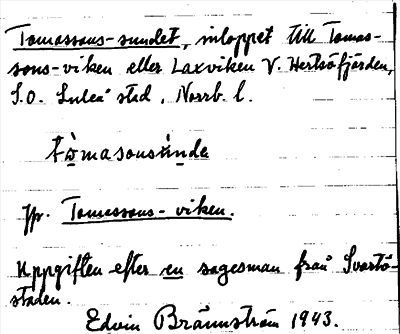 Tomassons-sundet, inloppet till Tomas-
sons-viken eller Laxviken V. Hertsöfjärden,
S.O. Luleå stad, Norrb. l.
tòmasonsúnde
Jfr. Tomassons-viken.
Uppgiften efter en sagesman från Svartö-
staden.
Edvin Brännström 1943.